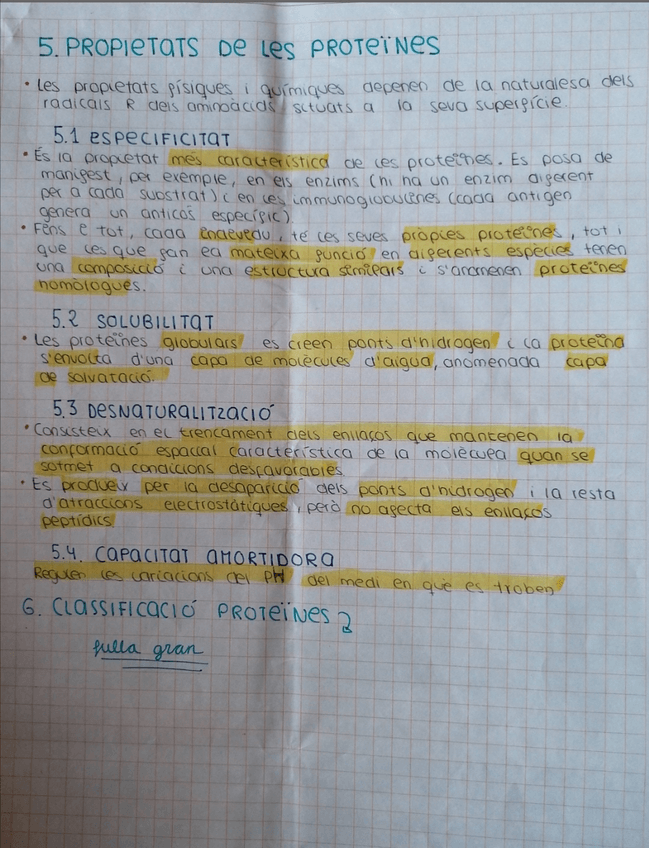 5. PROPIETATS DE LES PROTEÏNES
• Les propietats físiques i químiques depenen de la naturalesa dels
radicals R dels aminoàcids situats a la seva superfície.
5.1 ESPECIFICITAT
• És la propietat més característica de les proteïnes. Es posa de
manifest, per exemple, en els enzims (hi ha un enzim diferent
per a cada substrat) i en les immunoglobulines (cada antigen
genera un anticòs específic)
• Fins i tot, cada individu, té les seves pròpies proteïnes, tot i
que les que fan la mateixa funció en diferents espècies tenen
una composició i una estructura similars i s'anomenen proteïnes
homòlogues.
5.2 SOLUBILITAT
• Les proteïnes globulars es creen ponts d'hidrogen i la proteïna
s'envolta d'una capa de molècules d'aigua, anomenada capa
de solvatació.
5.3 DESNATURALITZACIÓ
• Consisteix en el trencament dels enllaços que mantenen la
conformació espacial característica de la molècula quan se
sotmet a condicions desfavorables
• Es produeix per la desaparició dels ponts d'hidrogen i la resta
d'atraccions electrostàtiques, però no afecta els enllaços
peptídics
5.4. CAPACITAT AMORTIDORA
Regulen les variacions del PH del medi en què es troben
6. CLASSIFICACIÓ PROTEÏNES
fulla gran